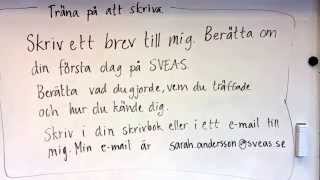 Träna på att skriva.
Skriv ett brev till mig. Berätta om
din första dag på SVEAS.
Berätta vad du gjorde, vem du träffade
och hur du kände dig.
Skriv i din skrivbok eller i ett e-mail till
mig. Min e-mail är sarah.andersson@sveas.se